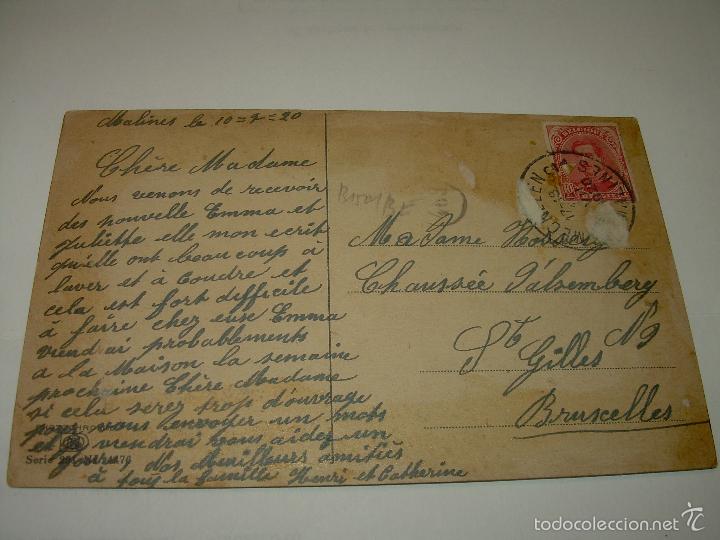 Malines le 10=7=20
Chère Madame
Nous venons de recevoir
des nouvelle Emma et
Juliette elle mon ecrit
qu'elle ont beaucoup à
laver et à Coudre et
cela est fort difficile
à faire chez euse Emma
viendrai probablements
a la Maison la semaine
prochaine Chère Madame
si cela serez trop d'ouvrage
pour nous envoyer un mots
et viendrai vous aidez un
jours Nos Meilleurs amitiés
à tous la famille Henri et Catherine
Serie
BELGIQUE
MECHELEN
MALINES
Madame
Chaussée D'alsemberg
No
St Gilles
Bruxelles
todocoleccion.net